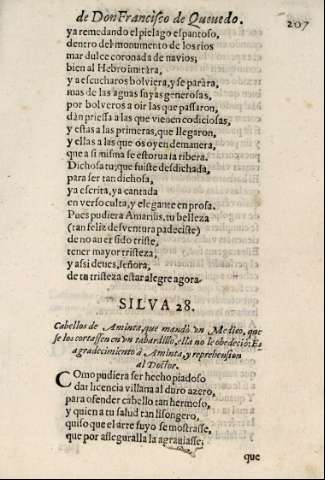 de Don Francisco de Quevedo.
207
ya remedando el pielago espantoso,
dentro del monumento de los rios
mar dulce coronada de navios;
bien al Hebro imitàra,
y a escucharos bolviera, y se paràra,
mas de las aguas suyas generosas,
por bolveros a oir las que passaron,
dàn priessa a las que vienen codiciosas,
y estas a las primeras, que llegaron,
y ellas a las que os oyen de manera,
que a si misma se estorua la ribera.
Dichosa tu, que fuiste desdichada,
para ser tan dichosa,
ya escrita, ya cantada
en verso culta, y elegante en prosa.
Pues pudiera Amarilis, tu belleza
(tan feliz desventura padeciste)
de no auer sido triste,
tener mayor tristeza,
y assi deues, señora,
de tu tristeza estar alegre agora.
SILVA 28.
Cabellos de Aminta, que mandò vn Medico, que
se los cortassen en vn tabardillo, ella no le obedeciò; Es
agradecimiento à Aminta, y reprehension
al Doctor.
Como pudiera ser hecho piadoso
dar licencia villana al duro azero,
para ofender cabello tan hermoso,
y quien a tu salud tan lisongero,
quiso que el arte suyo se mostrasse,
que por asseguralla la agrauiasse;
que